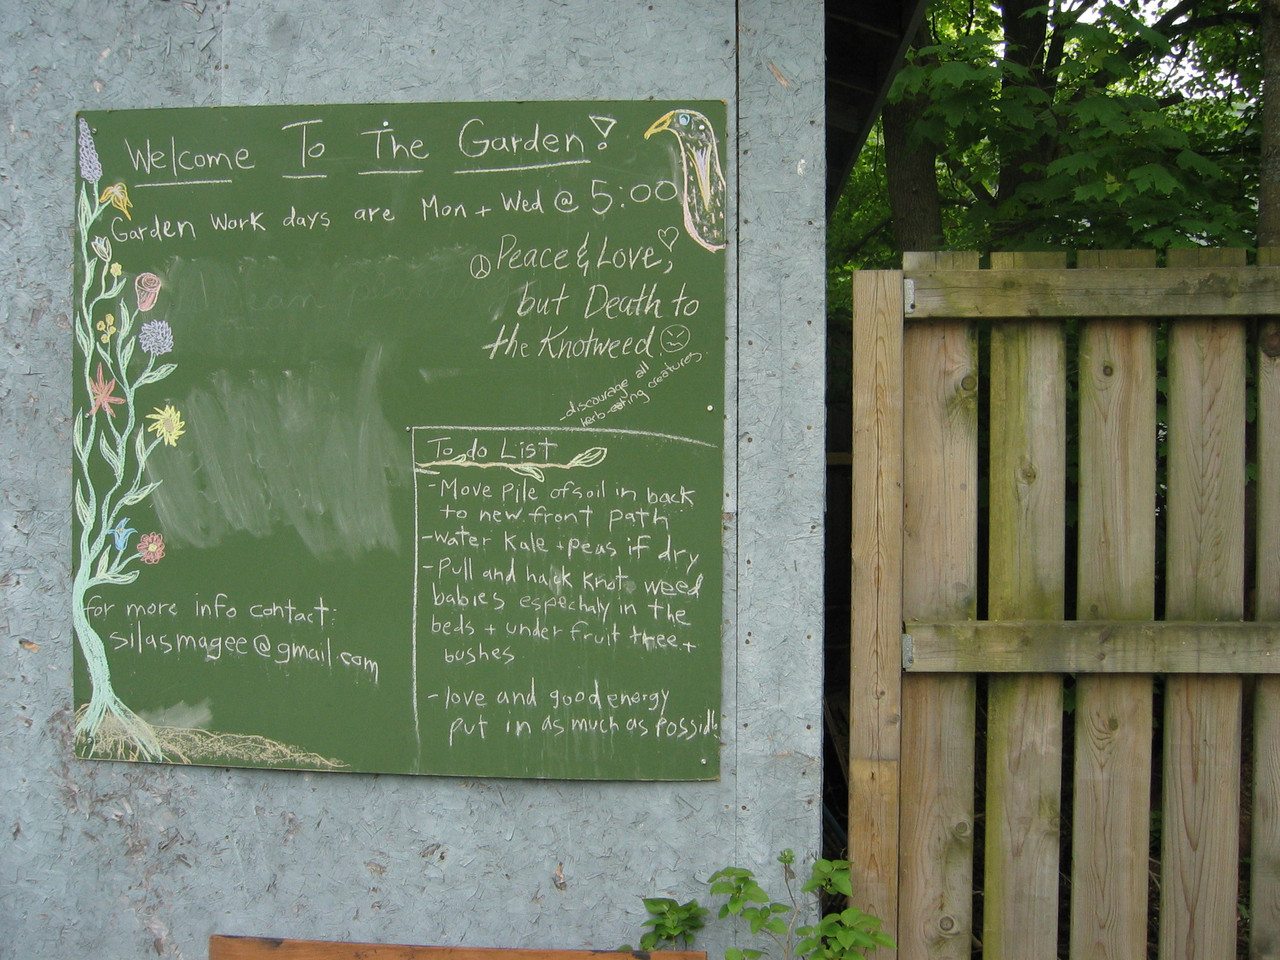 Welcome To The Garden!
Garden work days are Mon + Wed @ 5:00
Peace & Love,
but Death to
the Knotweed.
discourage all
herb-eating creatures.
To do List
- Move pile of soil in back
to new front path
- water kale + peas if dry
- Pull and hack knot weed
babies espechaly in the
beds + under fruit tree +
bushes
- love and good energy
put in as much as possible
for more info contact:
silasmagee@gmail.com